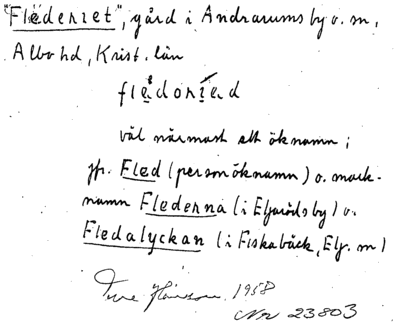 "Flederiet", gård i Andrarums by o. m,
Albo hd, Krist. län
väl närmast ett öknamn;
jfr. Fled (personöknamn) o. mark-
namn Flederna (i Eljaröds by) o.
Fledalyckan (i Fiskabäck, Elj. m)
1958
Nr 23803